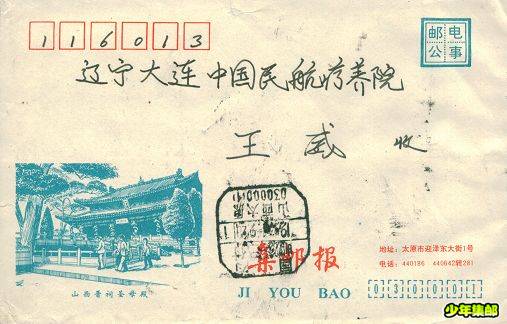 116013
邮电
公事
辽宁大连中国民航疗养院
王威 收
山西太原
030000
集邮报
JI YOU BAO
山西晋祠圣母殿
地址：太原市迎泽东大街1号
电话：440186 440642转281
030001
少年集邮